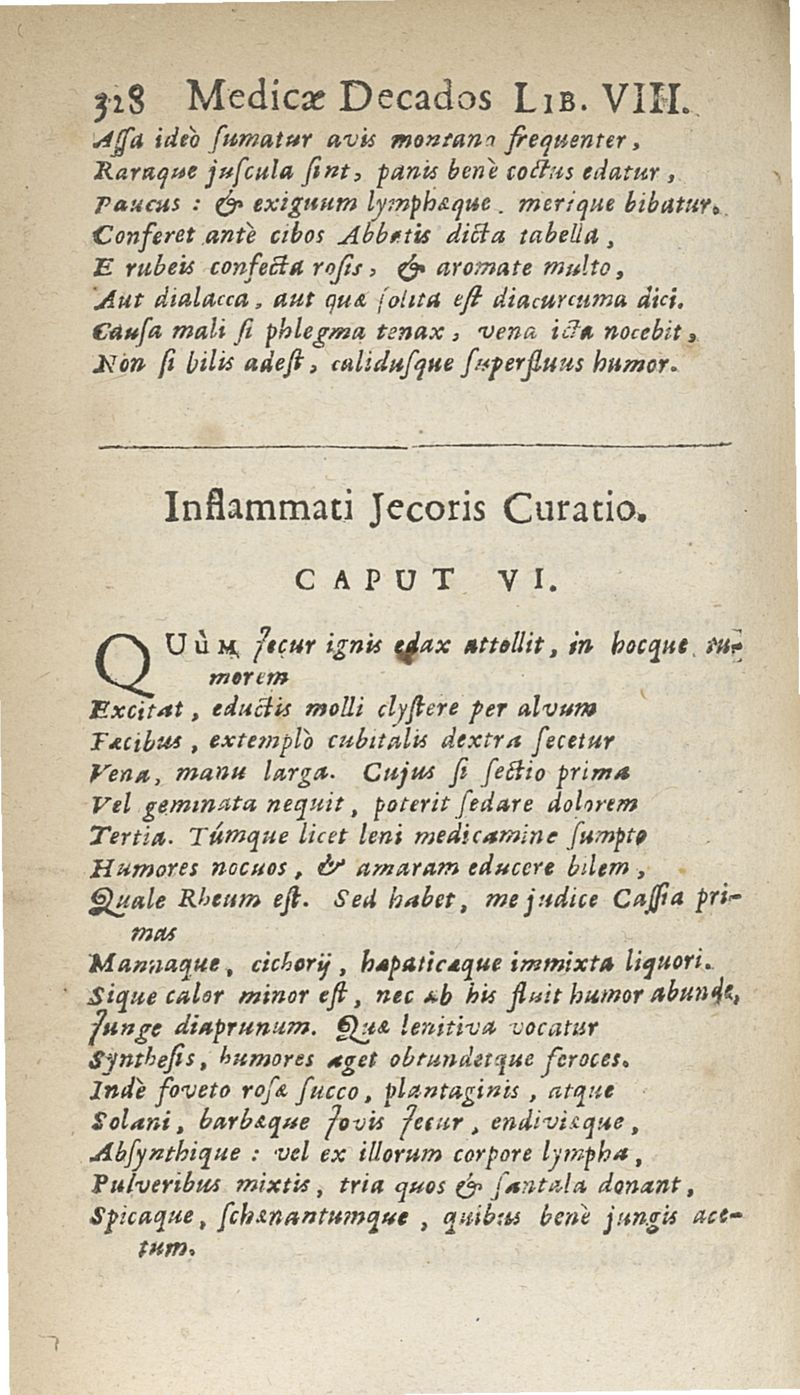 328 Medicæ Decados LIB. VIII.
Aſſa ideò ſumatur avis montana frequenter,
Raraque juſcula ſint, panis benè coctus edatur,
Paucus : & exiguum lymphæque. merique bibatur.
Conferet antè cibos Abbatis dicta tabella,
E rubeis confecta roſis, & aromate multo,
Aut dialacca, aut quæ ſolita eſt diacurcuma dici.
Cauſa mali ſi phlegma tenax, vena icta nocebit,
Non ſi bilis adeſt, caliduſque ſuperfluus humor.
Inflammati Jecoris Curatio.
CAPUT VI.
QUùM Jecur ignis edax attollit, in hocque tu-
morem
Excitat, eductis molli clyſtere per alvum
Fæcibus, extemplò cubitalis dextra ſecetur
Vena, manu larga. Cujus ſi ſectio prima
Vel geminata nequit, poterit ſedare dolorem
Tertia. Túmque licet leni medicamine ſumpto
Humores nocuos, & amaram educere bilem,
Quale Rheum eſt. Sed habet, me judice Caſſia pri-
mas
Mannaque, cichorij, hapaticæque immixta liquori.
Sique calor minor eſt, nec ab his fluit humor abunde,
Junge diaprunum. Quæ lenitiva vocatur
Syntheſis, humores aget obtundetque feroces.
Indè foveto roſæ ſucco, plantaginis, atque
Solani, barbæque Jovis Jecur, endiviæque,
Abſynthique : vel ex illorum corpore lympha,
Pulveribus mixtis, tria quos & ſantala donant,
Spicaque, ſchænantumque, quibus benè jungis ace-
tum.